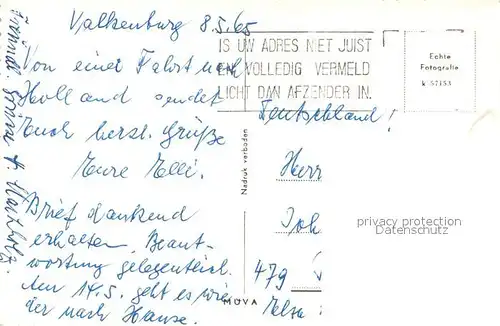 Valkenburg 8.5.65
Von einer Fahrt nach
Holland sendet
Euch herzl. Grüße
Eure Elli.
Brief dankend
erhalten, Beant-
wortung gelegentlich.
Am 14.5. geht es wie
der nach Hause.
IS UW ADRES NIET JUIST
EN VOLLEDIG VERMELD
LICHT DAN AFZENDER IN.
Echte
Fotografie
Deutschland!
Nadruk verboden
Herr
Joh
479
MUVA
privacy protection
Datenschutz